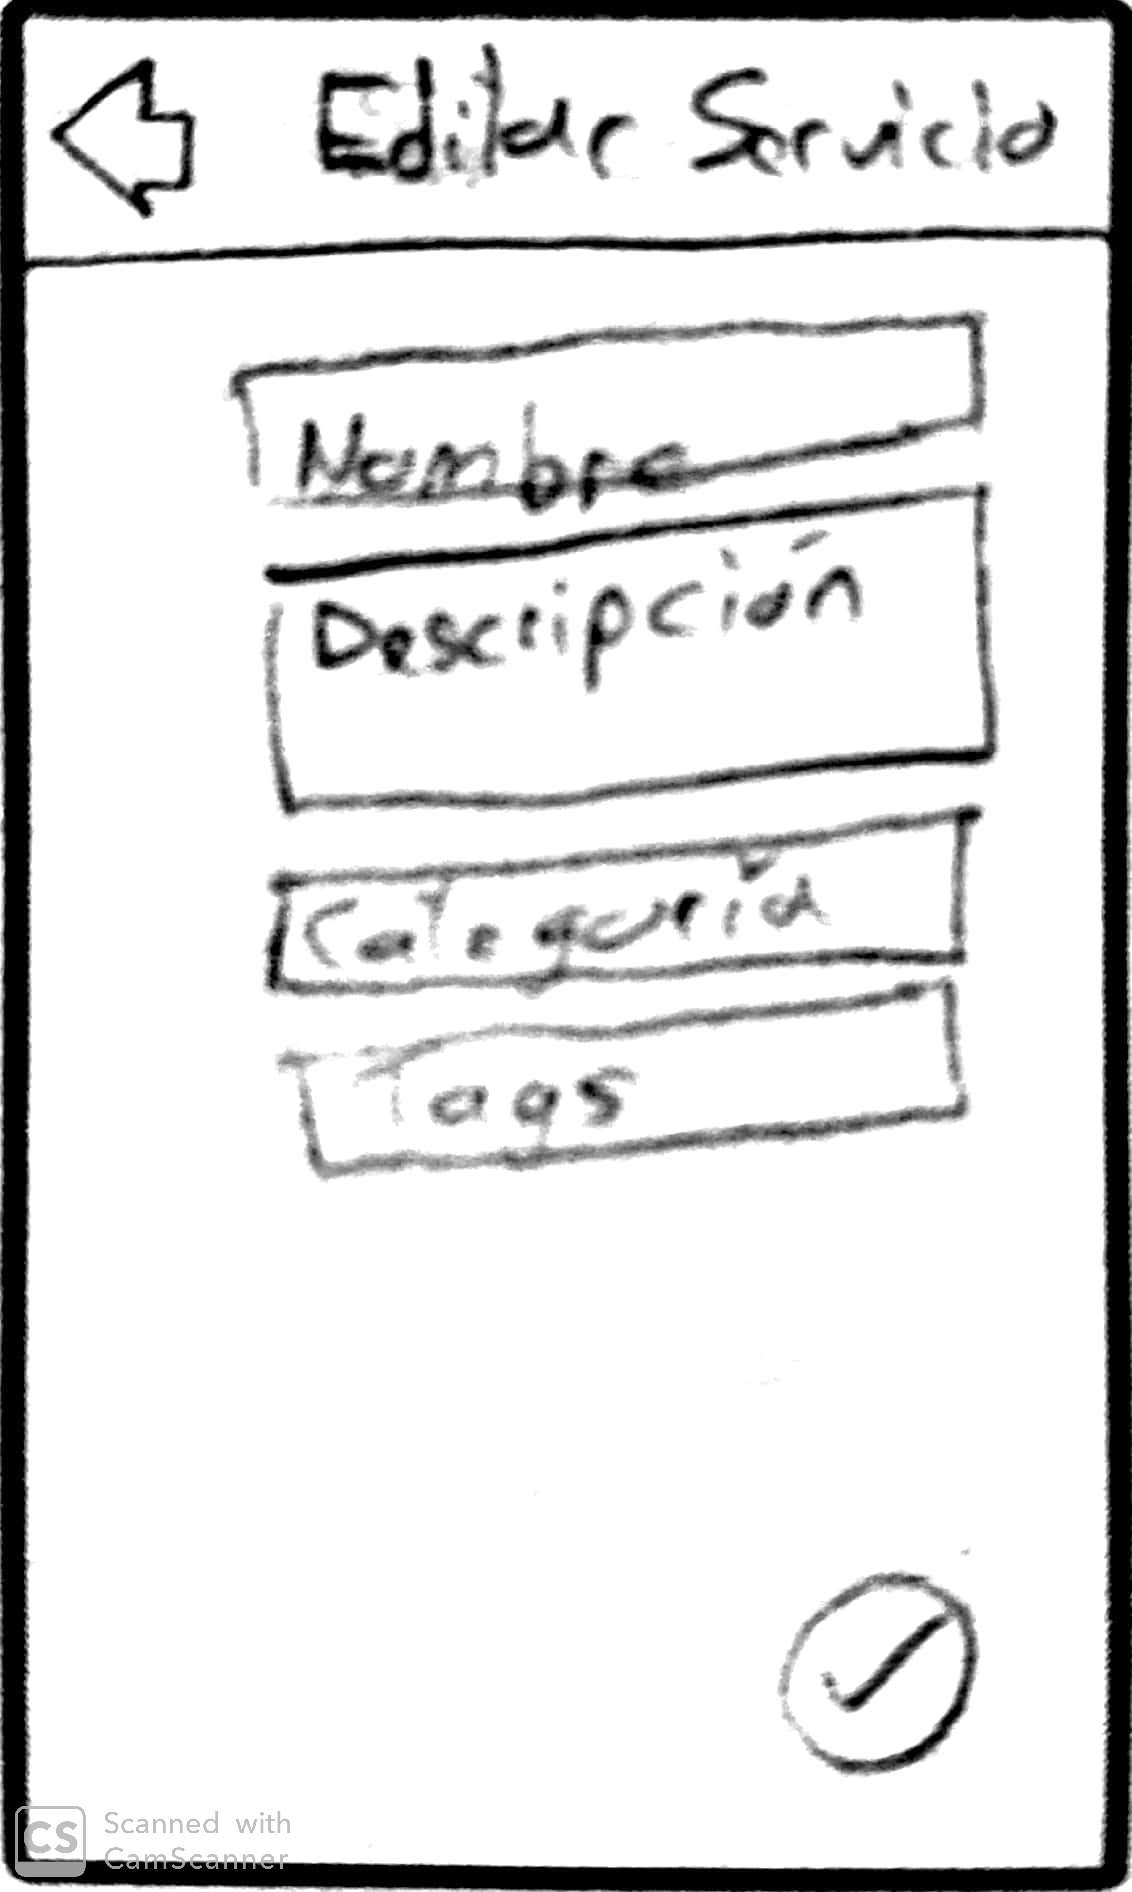 Editar Servicio
Nombre
Descripción
Categoría
Tags
CS Scanned with
CamScanner